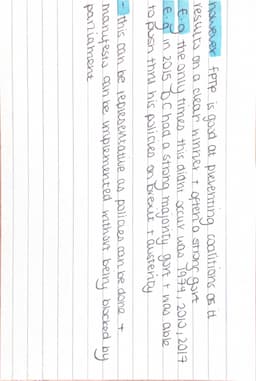 however FPTP is good at preventing coalitions as it
results on a clear winner + often a strong govt
E.g the only times this didn't occur was 1974, 2010, 2017
E.g in 2015 DC had a strong majority govt + was able
to push thru his policies on brexit + austerity
- this can be representative as policies can be done +
manifesto can be implemented without being blocked by
parliament